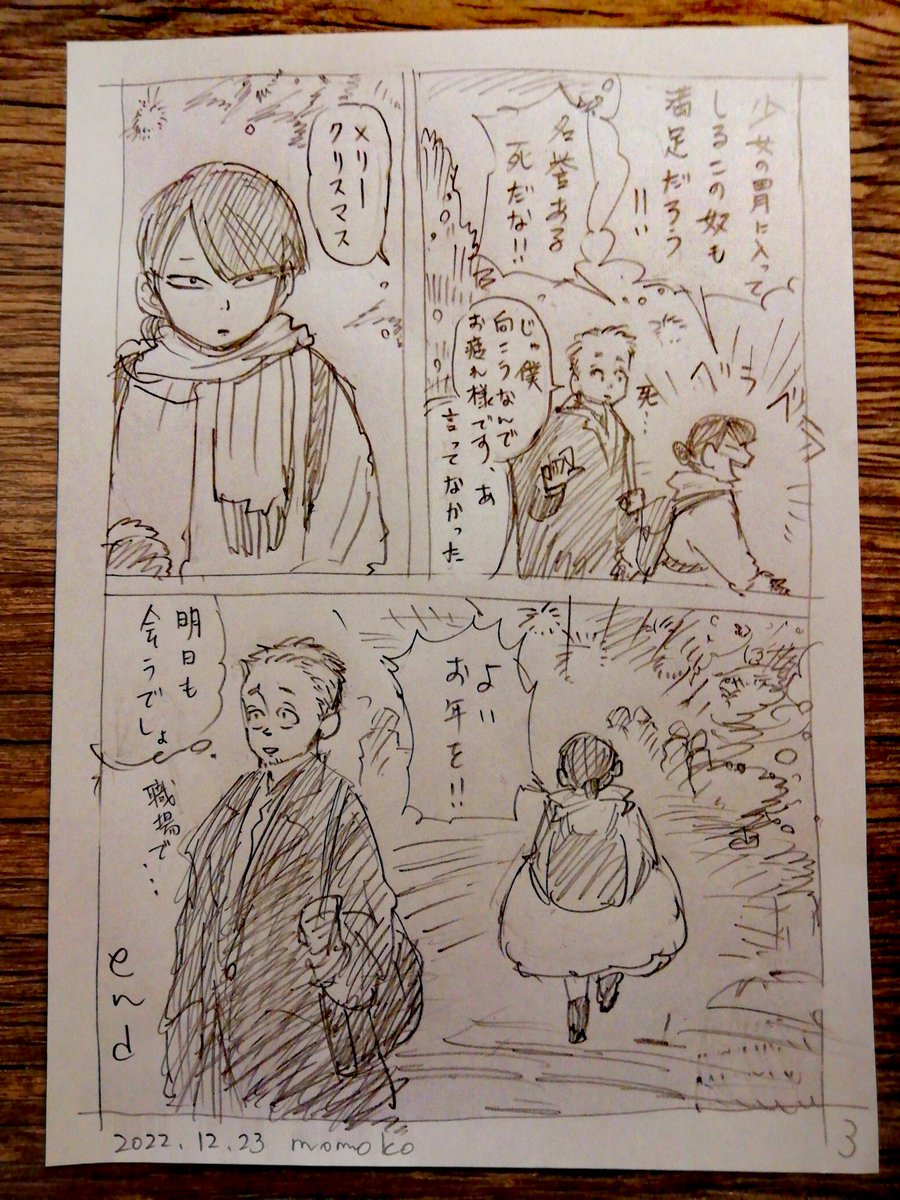 少女の胃に入って
しるこの奴も
満足だろう
!!
名誉ある
死だな!!
ベラ
ベラ
死…
じゃ僕
向こうなんで
お疲れ様です、あ
言ってなかった
メリー
クリスマス
よい
お年を!!
明日も
会うでしょ
職場で…
end
2022.12.23 momoko
3